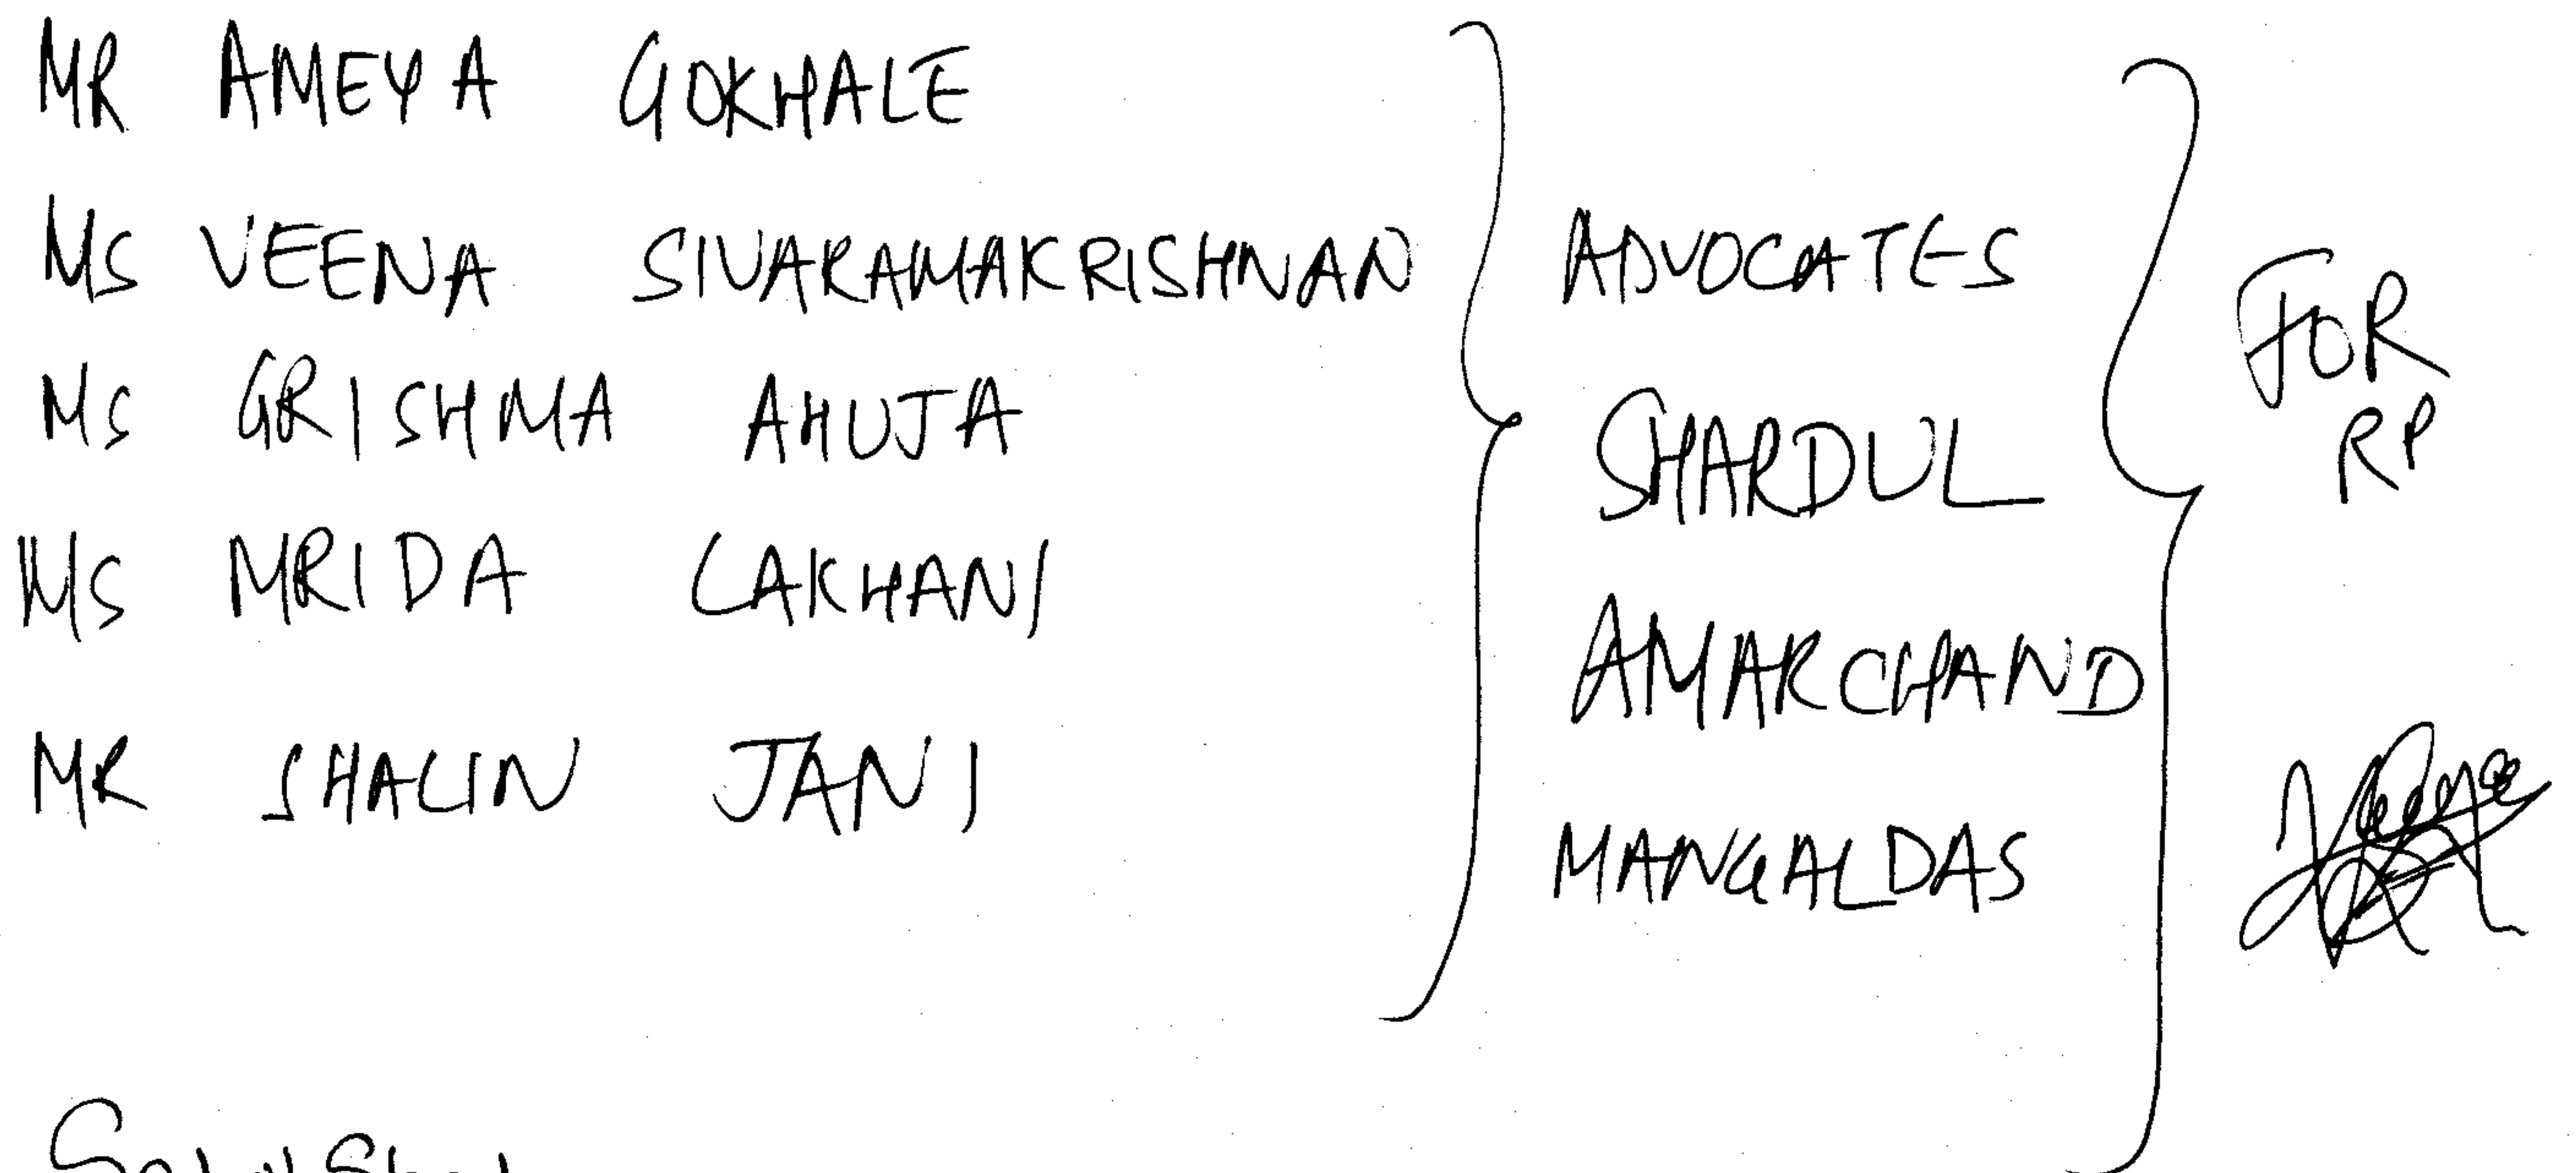 MR AMEYA GOKHALE
MS VEENA SIVARAMAKRISHNAN
MS GRISHMA AHUJA
MS MRIDA LAKHANI
MR SHALIN JANI
ADVOCATES
SHARDUL
AMARCHAND
MANGALDAS
FOR
RP